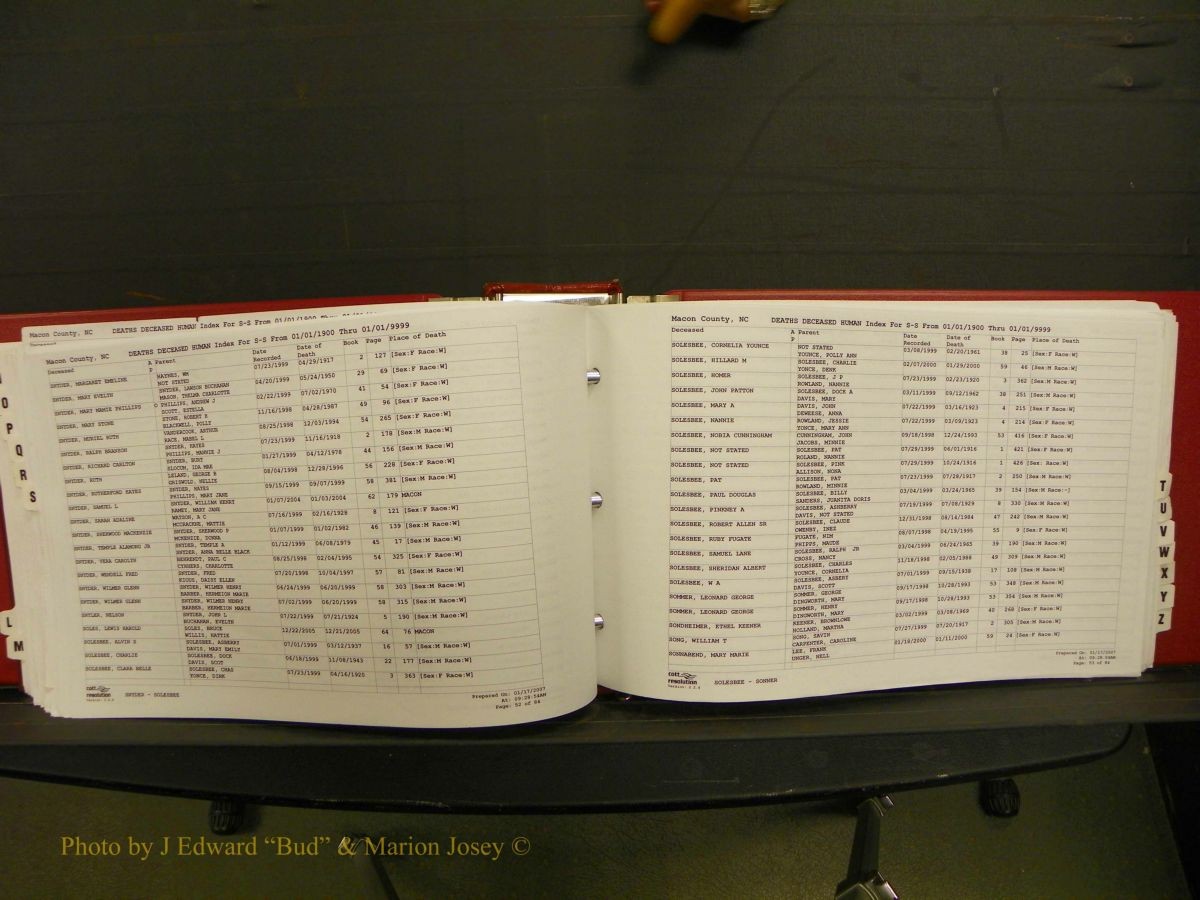 O
P
Q
R
S
L
M
Macon County, NC DEATHS DECEASED HUMAN Index For S-S From 01/01/1900 Thru 01/01/9999
Macon County, NC DEATHS DECEASED HUMAN Index For S-S From 01/01/1900 Thru 01/01/9999
Deceased A Parent Date Recorded Date of Death Book Page Place of Death
P
SNYDER, MARGARET EMELINE 07/23/1999 04/29/1917 2 127 [Sex:F Race:W]
HAYNES, WM
NOT STATED
SNYDER, MARY EVELYN SNYDER, LAWSON BUCHANAN 04/20/1999 05/24/1950 29 69 [Sex:F Race:W]
MASON, THELMA CHARLOTTE
SNYDER, MARY MAMIE PHILLIPS PHILLIPS, ANDREW J 02/22/1999 07/02/1970 41 54 [Sex:F Race:W]
SCOTT, ESTELLA
SNYDER, MARY STONE STONE, ROBERT E 11/16/1998 04/28/1987 49 96 [Sex:F Race:W]
BLACKWELL, POLLY
SNYDER, MURIEL RUTH VANDERCOOK, ARTHUR 08/25/1998 12/03/1994 54 265 [Sex:F Race:W]
RACE, MABEL L
SNYDER, RALPH BRANSON SNYDER, HAYES 07/23/1999 11/16/1918 2 178 [Sex:M Race:W]
PHILLIPS, MANNIE J
SNYDER, RICHARD CARLTON SNYDER, BURT 01/27/1999 04/12/1978 44 156 [Sex:M Race:W]
SLOCUM, IDA MAE
SNYDER, RUTH LELAND, GEORGE B 08/04/1998 12/28/1996 56 228 [Sex:F Race:W]
GRISWOLD, NELLIE
SNYDER, RUTHERFORD HAYES SNYDER, HAYES 09/15/1999 09/07/1999 58 381 [Sex:M Race:W]
PHILLIPS, MARY JANE
SNYDER, SAMUEL L SNYDER, WILLIAM HENRY 01/07/2004 01/03/2004 62 179 MACON
RAMEY, MARY JANE
SNYDER, SARAH ADALINE WATSON, A C 07/16/1999 02/16/1928 8 121 [Sex:F Race:W]
MCCRACKNE, MATTIE
SNYDER, SHERWOOD MACKENZIE SNYDER, SHERWOOD P 01/07/1999 01/01/1982 46 139 [Sex:M Race:W]
MCKENZIE, DONNA
SNYDER, TEMPLE ALAMONG JR SNYDER, TEMPLE A 01/12/1999 06/08/1979 45 17 [Sex:M Race:W]
SNYDER, ANNA BELLE BLACK
SNYDER, VERA CAROLYN BEHRENDT, PAUL C 08/25/1998 02/04/1995 54 325 [Sex:F Race:W]
CYNHERS, CHARLOTTE
SNYDER, WENDELL FRED SNYDER, FRED 07/20/1998 10/04/1997 57 81 [Sex:M Race:W]
KIOUS, DAISY ELLEN
SNYDER, WILMER GLENN SNYDER, WILMER HENRY 06/24/1999 06/20/1999 58 303 [Sex:M Race:W]
BARBER, HERMEION MARIE
SNYDER, WILMER GLENN SNYDER, WILMER HENRY 07/02/1999 06/20/1999 58 315 [Sex:M Race:W]
BARBER, HERMEION MARIE
SNYER, NELSON SNYDER, JOHN L 07/22/1999 07/21/1924 5 190 [Sex:M Race:W]
BUCHANAN, EVELYN
SOLES, LEWIS HAROLD SOLES, BRUCE 12/22/2005 12/21/2005 64 76 MACON
WILLIS, HATTIE
SOLESBEE, ALVIN S SOLESBEE, ASBERRY 07/01/1999 03/12/1937 16 57 [Sex:M Race:W]
DAVIS, MARY EMILY
SOLESBEE, CHARLIE SOLESBEE, DOCK 06/18/1999 11/08/1943 22 177 [Sex:M Race:W]
DAVIS, SCOT
SOLESBEE, CLARA BELLE SOLESBEE, CHAS 07/23/1999 04/16/1920 3 363 [Sex:F Race:W]
YONCE, DIRK
cott resolution SNYDER - SOLESBEE
Prepared On: 01/17/2007
At: 09:28:54AM
Page: 52 of 84
Macon County, NC DEATHS DECEASED HUMAN Index For S-S From 01/01/1900 Thru 01/01/9999
Deceased A Parent Date Recorded Date of Death Book Page Place of Death
P
SOLESBEE, CORNELIA YOUNCE NOT STATED 03/08/1999 02/20/1961 38 25 [Sex:F Race:W]
YOUNCE, POLLY ANN
SOLESBEE, HILLARD M SOLESBEE, CHARLIE 02/07/2000 01/29/2000 59 46 [Sex:M Race:W]
YONCE, DENK
SOLESBEE, HOMER SOLESBEE, J P 07/23/1999 02/23/1920 3 362 [Sex:M Race:W]
ROWLAND, NANNIE
SOLESBEE, JOHN PATTON SOLESBEE, DOCK A 03/11/1999 09/12/1962 38 251 [Sex:M Race:W]
DAVIS, MARY
SOLESBEE, MARY A DAVIS, JOHN 07/22/1999 03/16/1923 4 215 [Sex:F Race:W]
DEWEESE, ANNA
SOLESBEE, NANNIE ROWLAND, JESSIE 07/22/1999 03/09/1923 4 214 [Sex:F Race:W]
YONCE, MARY ANN
SOLESBEE, NOBIA CUNNINGHAM CUNNINGHAM, JOHN 09/18/1998 12/24/1993 53 416 [Sex:F Race:W]
JACOBS, MINNIE
SOLESBEE, NOT STATED SOLESBEE, PAT 07/29/1999 06/01/1916 1 421 [Sex:F Race:W]
ROLAND, NANNIE
SOLESBEE, NOT STATED SOLESBEE, PINK 07/29/1999 10/24/1916 1 426 [Sex: Race:W]
ALLISON, NONA
SOLESBEE, PAT SOLESBEE, PAT 07/23/1999 07/28/1917 2 250 [Sex:M Race:W]
ROWLAND, MINNIE
SOLESBEE, PAUL DOUGLAS SOLESBEE, BILLY 03/04/1999 03/24/1965 39 154 [Sex:M Race:-]
SANDERS, JUANITA DORIS
SOLESBEE, PINKNEY A SOLESBEE, ASHBERRY 07/19/1999 07/08/1929 8 330 [Sex:M Race:W]
DAVIS, NOT STATED
SOLESBEE, ROBERT ALLEN SR SOLESBEE, CLAUDE 12/31/1998 08/14/1984 47 242 [Sex:M Race:W]
OWENBY, INEZ
SOLESBEE, RUBY FUGATE FUGATE, NIM 08/07/1998 04/19/1995 55 9 [Sex:F Race:W]
PHIPPS, MAUDE
SOLESBEE, SAMUEL LANE SOLESBEE, RALPH JR 03/04/1999 06/24/1965 39 190 [Sex:M Race:W]
CROSS, NANCY
SOLESBEE, SHERIDAN ALBERT SOLESBEE, CHARLES 11/18/1998 02/05/1988 49 309 [Sex:M Race:W]
YOUNCE, CORNELIA
SOLESBEE, W A SOLESBEE, ASBERY 07/01/1999 09/15/1938 17 108 [Sex:M Race:W]
DAVIS, SCOTT
SOMMER, LEONARD GEORGE SOMMER, GEORGE 09/17/1998 10/28/1993 53 348 [Sex:M Race:W]
DINGWORTH, MARY
SOMMER, LEONARD GEORGE SOMMER, HENRY 09/17/1998 10/28/1993 53 354 [Sex:M Race:W]
DINGWORTH, MARY
SONDHEIMER, ETHEL KEENER KEENER, BROWNLOWE 03/02/1999 03/08/1969 40 268 [Sex:F Race:W]
HOLLAND, MARTHA
SONG, WILLIAM T SONG, SAVIN 07/27/1999 07/20/1917 2 305 [Sex:M Race:W]
CARPENTER, CAROLINE
SONNABEND, MARY MARIE LEE, FRANK 01/19/2000 01/11/2000 59 24 [Sex:F Race:W]
UNGER, NELL
cott resolution SOLESBEE - SONNER
Prepared On: 01/17/2007
At: 09:28:54AM
Page: 53 of 84
T
U
V
W
X
Y
Z
Photo by J Edward “Bud” & Marion Josey ©